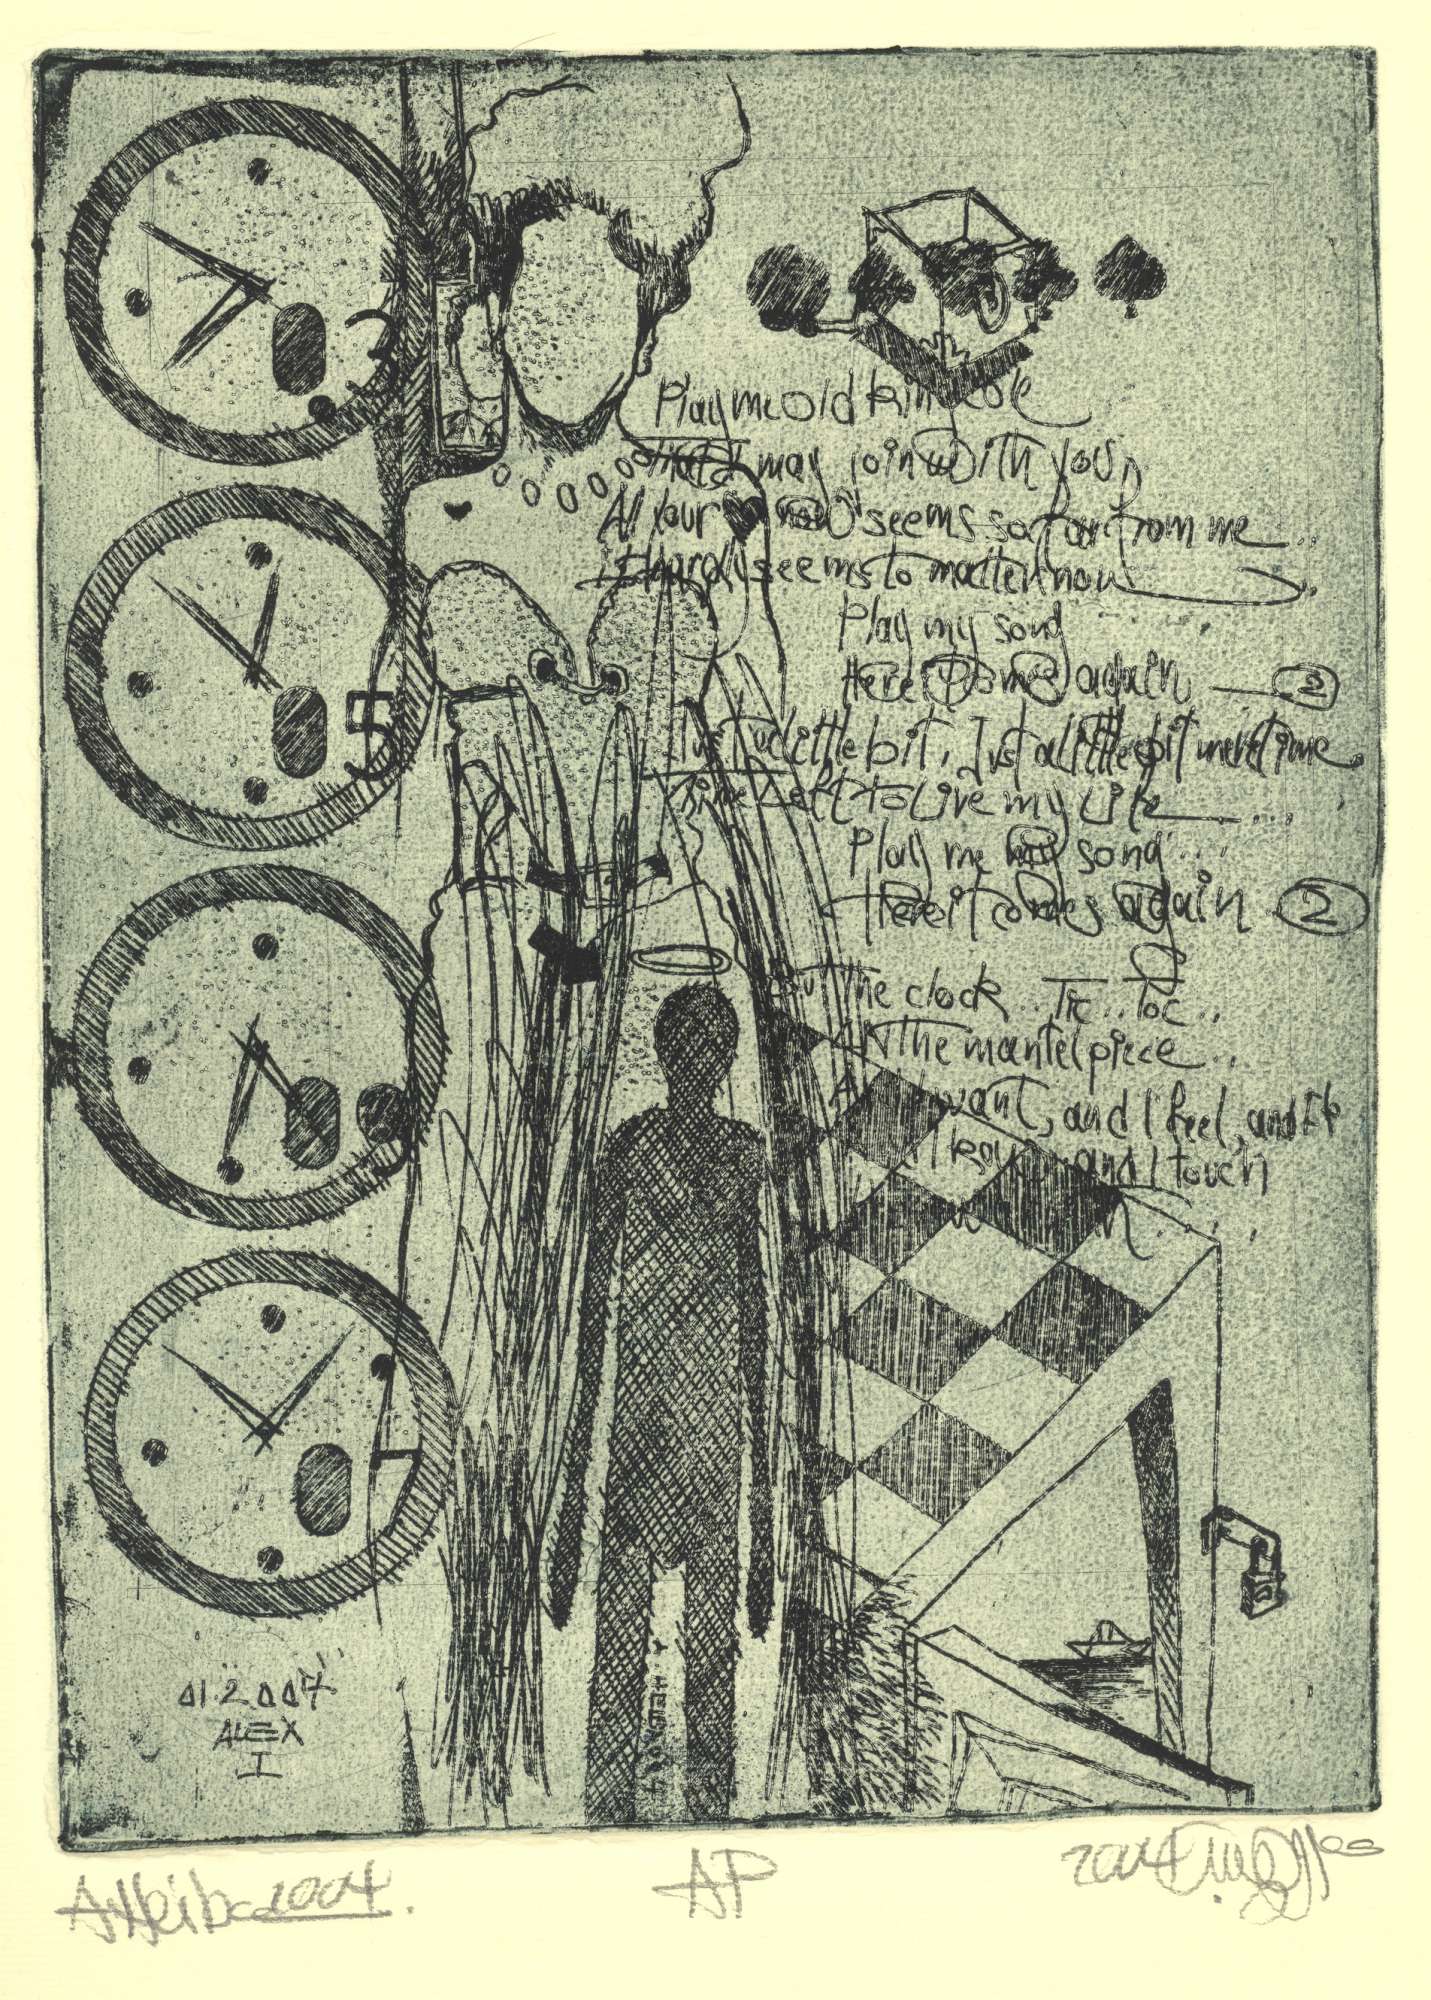 3
5
Play me Old King Cole
that I may join With you,
All your ♥ now seems so far from me...
it hardly seems to matter now...
Play my song
Here it comes again — 2
Just a little bit, Just a little bit more time
time Left to Live my Life...
Play me my song...
Here it comes again 2
But The clock.. Tic.. Toc..
ON The mantelpiece..
want, and I feel, and I
I know and I touch
01.2004
ALEX
I
A. Heiba 2004.
AP
2004